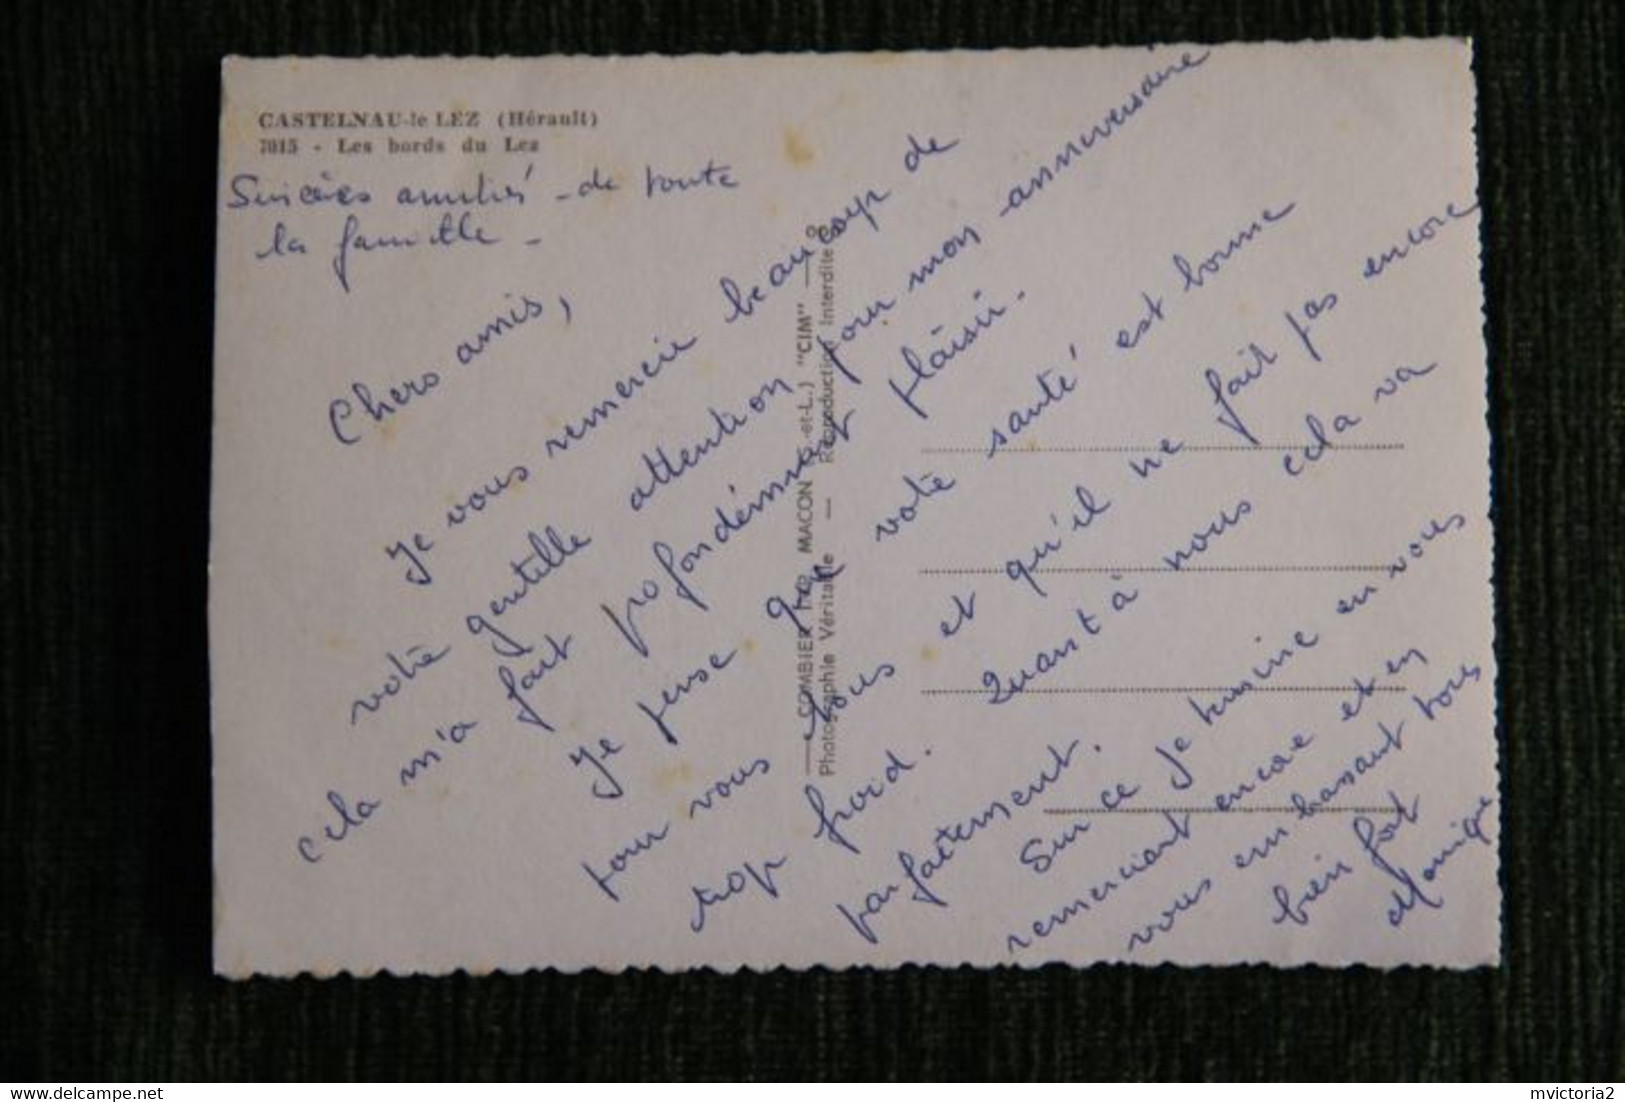 CASTELNAU-le LEZ (Hérault)
7015 - Les bords du Lez
Sincères amitiés - de toute
la famille -
Chers amis,
Je vous remercie beaucoup de
votre gentille attention pour mon anniversaire
cela m'a fait profondément plaisir.
Je pense que votre santé est bonne
pour vous tous et qu'il ne fait pas encore
trop froid. Quant à nous cela va
parfaitement.
Sur ce je termine en vous
remerciant encore et en
vous embrassant tous
bien fort
Monique
COMBIER IMP. MACON (S.-et-L.) "CIM"
Photographie Véritable — Reproduction Interdite
mvictoria2